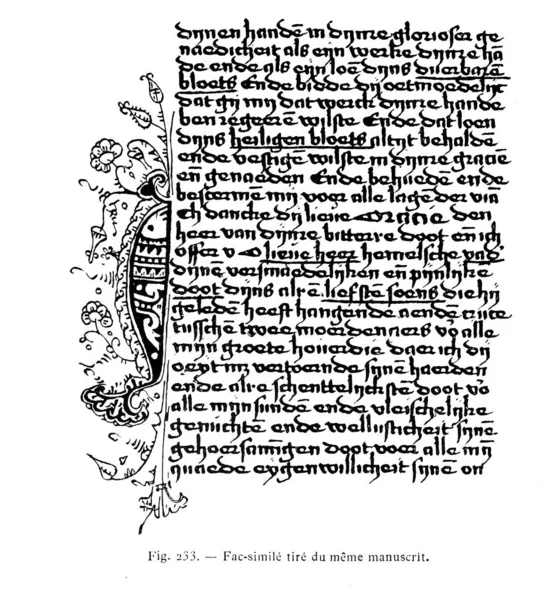 dijnen handē in dijnre glorioser ge
naedicheit als eijn wercke dijnre hā
de ende als eijn loē dijns dierbarē
bloets Ende bidde dij oetmoedelijc
dat gij mij dat werck dijnre hande
ben regerē wilste Ende dat loen
dijns heiligen bloets altijt behaldē
ende vestigē wilste in dijnre graciē
eñ genaeden Ende behuedē ende
beschermē mij voer alle lagē der viā
Ich dancke dij lieue Oracie den
heer van dijnre bitterre doot eñ ich
offer v O lieue heer hemelsche vad'
dijnē versmaedelijkē eñ pijnlijkē
doot dijns alrē liefstē soens die hij
geledē heeft hangende aendē cruce
tusschē twee moerdenaers vo alle
mijn groete houerdie daer ich dij
oeyt mz vertoernde sijnē haerdē
ende alre schenttelijckstē doot v'o
alle mijn sundē ende vleischelijke
genuchtē ende wellusticheit sijnē
gehoersamigen doot voer alle mijn
quaede eygenwillicheit sijnē on
Fig. 233. — Fac-similé tiré du même manuscrit.